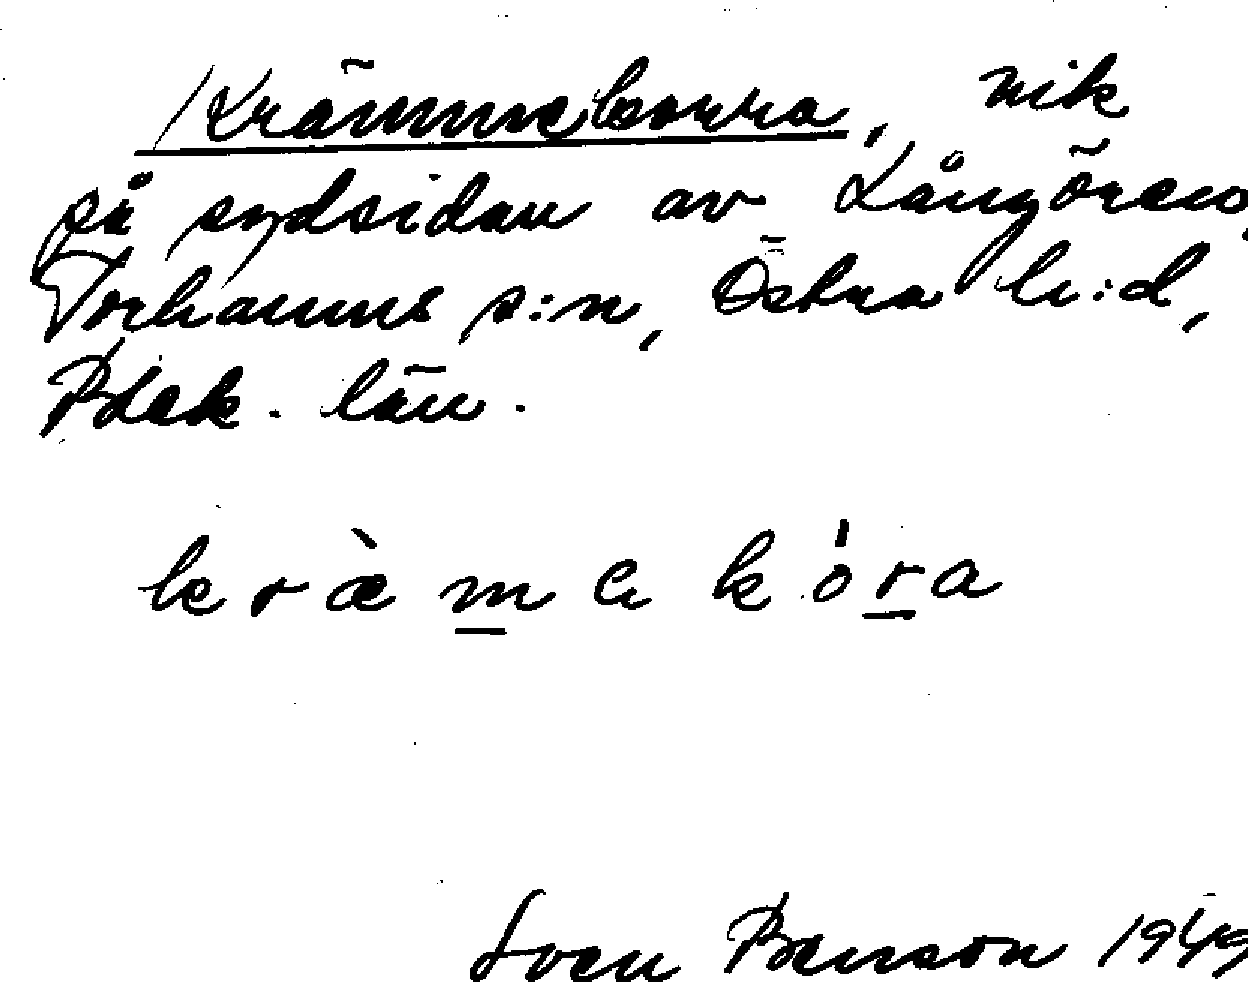 Krämmekorra, vik
på sydsidan av Långören,
Torhamns s:n, Östra h:d,
Blek. län.
kræ̀mekóra
Sven Benson 1949